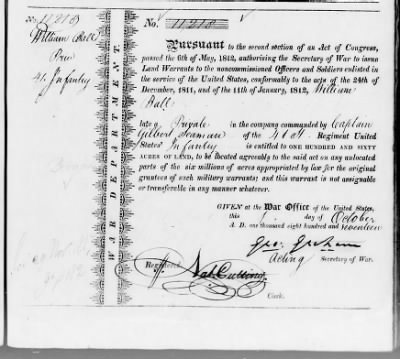 No. 11218
William Ball
Priv
41. Infantry
WAR DEPARTMENT.
No. 11218
Pursuant to the second section of an Act of Congress,
passed the 6th of May, 1812, authorising the Secretary of War to issue
Land Warrants to the noncommissioned Officers and Soldiers enlisted
in the service of the United States, conformably to the acts of the 24th
of December, 1811, and of the 11th of January, 1812, William
Ball
late a Private in the company commanded by Captain
Gilbert Seaman of the 41st Regiment United
States' Infantry is entitled to ONE HUNDRED AND SIXTY
ACRES OF LAND, to be located agreeably to the said act on any unlocated
parts of the six millions of acres appropriated by law for the original
grantees of such military warrants; and this warrant is not assignable
or transferable in any manner whatever.
GIVEN at the War Office of the United States,
this day of October
A. D. one thousand eight hundred and seventeen
Geo: Graham
Acting Secretary of War.
Registered Nat Cutting
Clerk.